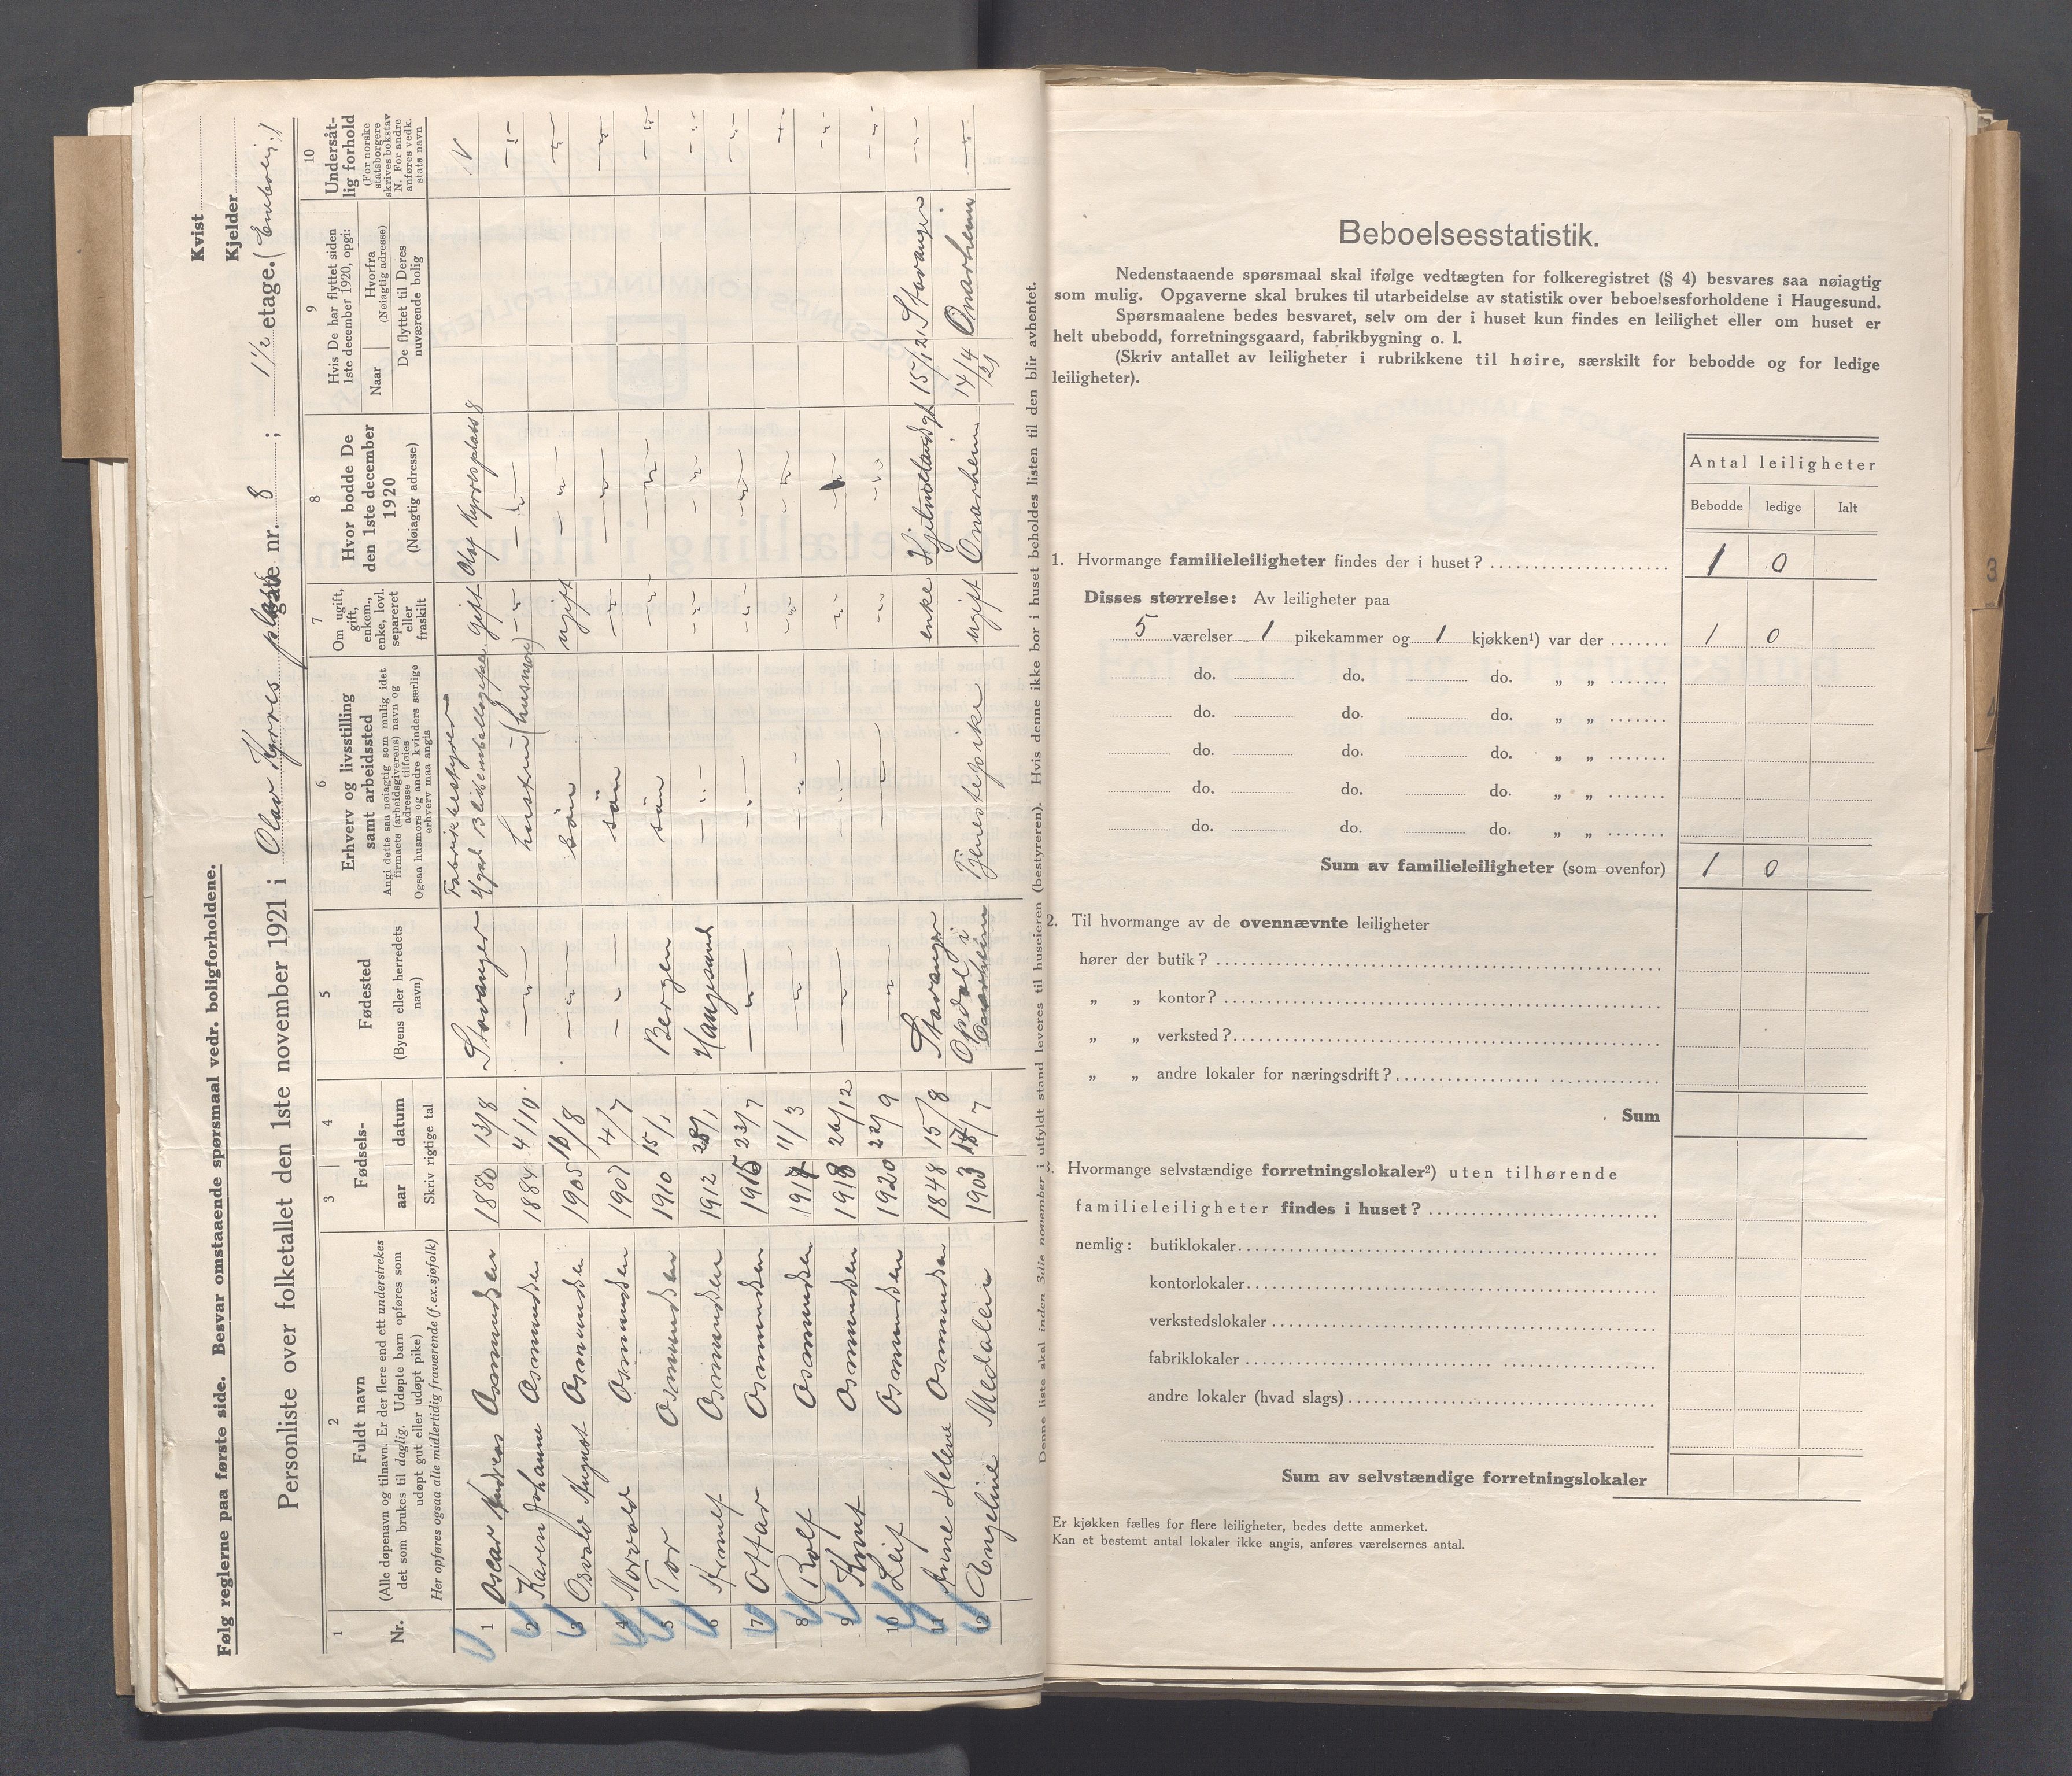 Følg reglerne paa første side. Besvar omstaaende spørsmaal vedr. boligforholdene.
Kvist
Kjelder
Personliste over folketallet den 1ste november 1921 i Olav Kyrres plads gate nr. 8 ; 1 1/2 etage. (Enebolig)
1 Nr.
2 Fuldt navn
(Alle døpenavn og tilnavn. Er der flere end ett understrekes det som brukes til daglig. Udøpte barn opføres som udøpt gut eller udøpt pike)
Her opføres ogsaa alle midlertidig fraværende (f.ex. sjøfolk)
3 4 Fødsels-
aar datum
Skriv rigtige tal
5 Fødested
(Byens eller herredets navn)
6 Erhverv og livsstilling samt arbeidssted
Angi dette saa nøiagtig som mulig idet firmaets (arbeidsgiverens) navn og adresse tilføies
Ogsaa husmors og andre kvinders særlige erhverv maa angis
7 Om ugift, gift, enkem., enke, lovl. separeret eller fraskilt
8 Hvor bodde De den 1ste december 1920
(Nøiagtig adresse)
9 Hvis De har flyttet siden 1ste december 1920, opgi:
Naar Hvorfra (Nøiagtig adresse)
De flyttet til Deres nuværende bolig
10 Undersåt-lig forhold
(For norske statsborgere skrives bokstav N. For andre anføres vedk. stats navn
1 Oscar Andreas Osmundsen 1880 13/8 Stavanger Fabrikbestyrer gift Olaf Kyrresplass 8 N
2 Karen Johanne Osmundsen 1884 4/10 -"- hustru (husmor) -"- -"- -"-
3 Osvald August Osmundsen 1905 /8 -"- søn ugift -"- -"-
4 Norvald Osmundsen 1907 4/7 -"- søn -"- -"- -"-
5 Tor Osmundsen 1910 15/1 Bergen søn -"- -"- -"-
6 Osmundsen 1912 28/1 Haugesund -"- -"- -"- -"-
7 Ottar Osmundsen 1915 23/7 -"- -"- -"- -"- -"-
8 Rolf Osmundsen 1917 11/3 -"- -"- -"- -"- -"-
9 Knut Osmundsen 1918 26/12 -"- -"- -"- -"- -"-
10 Leif Osmundsen 1920 22/9 -"- -"- -"- -"- -"-
11 Anne Helene Osmundsen 1848 15/8 Stavanger enke 15/12 Stavanger -"-
12 Angeline Medalen 1903 /7 Opdal i Tjenestepike ugift Onarheim 14/4 21 Onarheim -"-
Denne liste skal inden 3die november i utfyldt stand leveres til huseieren (bestyreren). Hvis denne ikke bor i huset beholdes listen til den blir avhentet.
Beboelsesstatistik.
Nedenstaaende spørsmaal skal ifølge vedtægten for folkeregistret (§ 4) besvares saa nøiagtig
som mulig. Opgaverne skal brukes til utarbeidelse av statistik over beboelsesforholdene i Haugesund.
Spørsmaalene bedes besvaret, selv om der i huset kun findes en leilighet eller om huset er
helt ubebodd, forretningsgaard, fabrikbygning o. l.
(Skriv antallet av leiligheter i rubrikkene til høire, særskilt for bebodde og for ledige
leiligheter).
Antal leiligheter
Bebodde ledige Ialt
1. Hvormange familieleiligheter findes der i huset? 1 0
Disses størrelse: Av leiligheter paa
5 værelser 1 pikekammer og 1 kjøkken¹) var der 1 0
do. do. do. „ „
do. do. do. „ „
do. do. do. „ „
do. do. do. „ „
do. do. do. „ „
Sum av familieleiligheter (som ovenfor) 1 0
2. Til hvormange av de ovennævnte leiligheter
hører der butik?
„ „ kontor?
„ „ verksted?
„ „ andre lokaler for næringsdrift?
Sum
3. Hvormange selvstændige forretningslokaler²) uten tilhørende
familieleiligheter findes i huset?
nemlig: butiklokaler
kontorlokaler
verkstedslokaler
fabriklokaler
andre lokaler (hvad slags)
Sum av selvstændige forretningslokaler
Er kjøkken fælles for flere leiligheter, bedes dette anmerket.
Kan et bestemt antal lokaler ikke angis, anføres værelsernes antal.
3
4